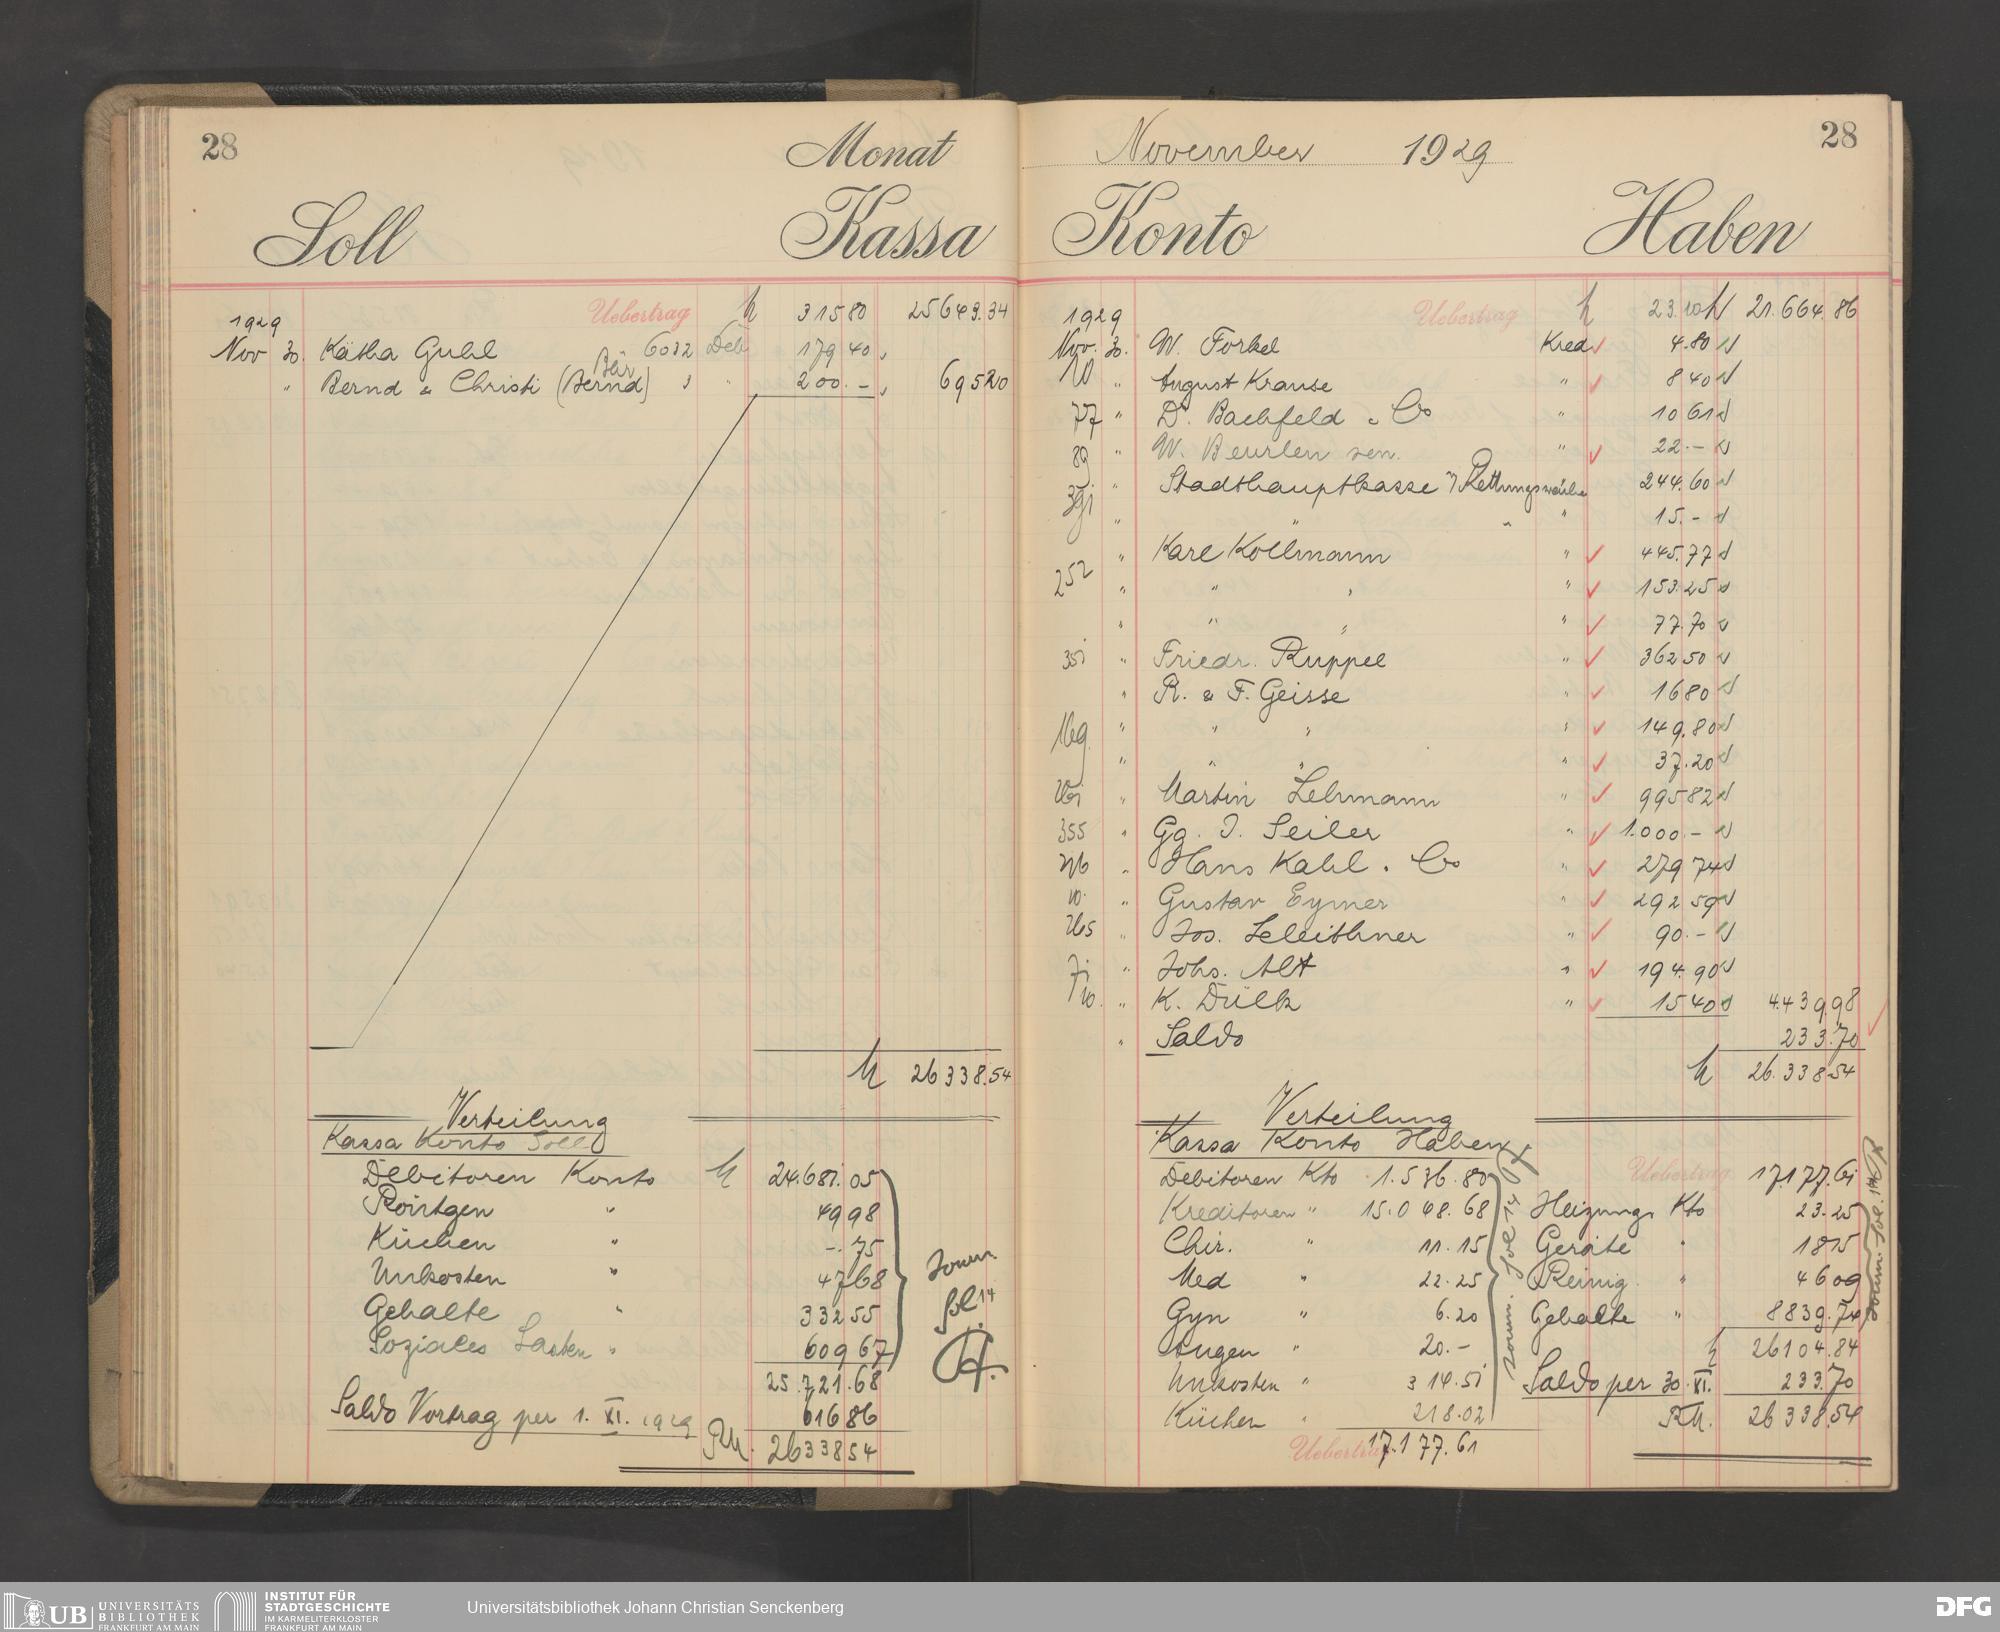 28
Monat
Soll Kassa
Uebertrag M 315 80 25643.34
1929
Nov 30. Kätha Guhl 6032 Deb 179 40
" Bernd & Christi (Bernd) Bär " 200.- 695 20
M 26338.54
Verteilung
Kassa Konto Soll
Debitoren Konto M 24.681.05
Röntgen " 49 98
Küchen " -.75
Unkosten " 47 68
Gehalte " 332 55
Soziales Lasten " 609 67
25.721.68
Saldo Vortrag per 1. XI. 1929 616 86
RM. 26338 54
Journ. fol. 14
28
November 1929
Konto Haben
1929 Uebertrag M 23.10 M 21.664.86
Nov. 30. W. Forkel Kred 4.80
10 " August Krause " 8 40
77 " Dr. Bachfeld & Co " 10 61
89 " W. Beurlen sen. " 22.-
391 " Stadthauptkasse Rettungswache 244.60
" " " " 15.-
" Karl Kollmann " 445.77
252 " " " " 153.25
" " " " 77.70
351 " Friedr. Ruppel " 362 50
" R. & F. Geisse " 16 80
169 " " " " 149.80
" " " " 37.20
" Martin Lehmann " 995 82
355 " Gg. J. Seiler " 1.000.-
" Hans Kahl & Co " 279 74
10. " Gustav Eymer " 292 59
265 " Jos. Leleithner " 90.-
71 " Johs. Alt " 194.90
10. " K. Dülk " 15 40 4.439.98
" Saldo 233.70
M 26.338 54
Verteilung
Kassa Konto Haben
Debitoren Kto 1.536.80
Kreditoren " 15.048.68
Chir. " 11.15
Med " 22.25
Gyn " 6.20
Augen " 20.-
Unkosten " 314.51
Küchen " 218.02
Uebertrag 17.177.61
Journ. fol 14
Uebertrag 17.177.61
Heizungs Kto 23.25
Geräte " 18 15
Reinig. " 46 09
Gehalte " 8839.74
M 26104.84
Saldo per 30. XI. 233.70
RM. 26338.54
Journ. fol. 14
UB UNIVERSITÄTS
BIBLIOTHEK
FRANKFURT AM MAIN
INSTITUT FÜR
STADTGESCHICHTE
IM KARMELITERKLOSTER
FRANKFURT AM MAIN
Universitätsbibliothek Johann Christian Senckenberg
DFG